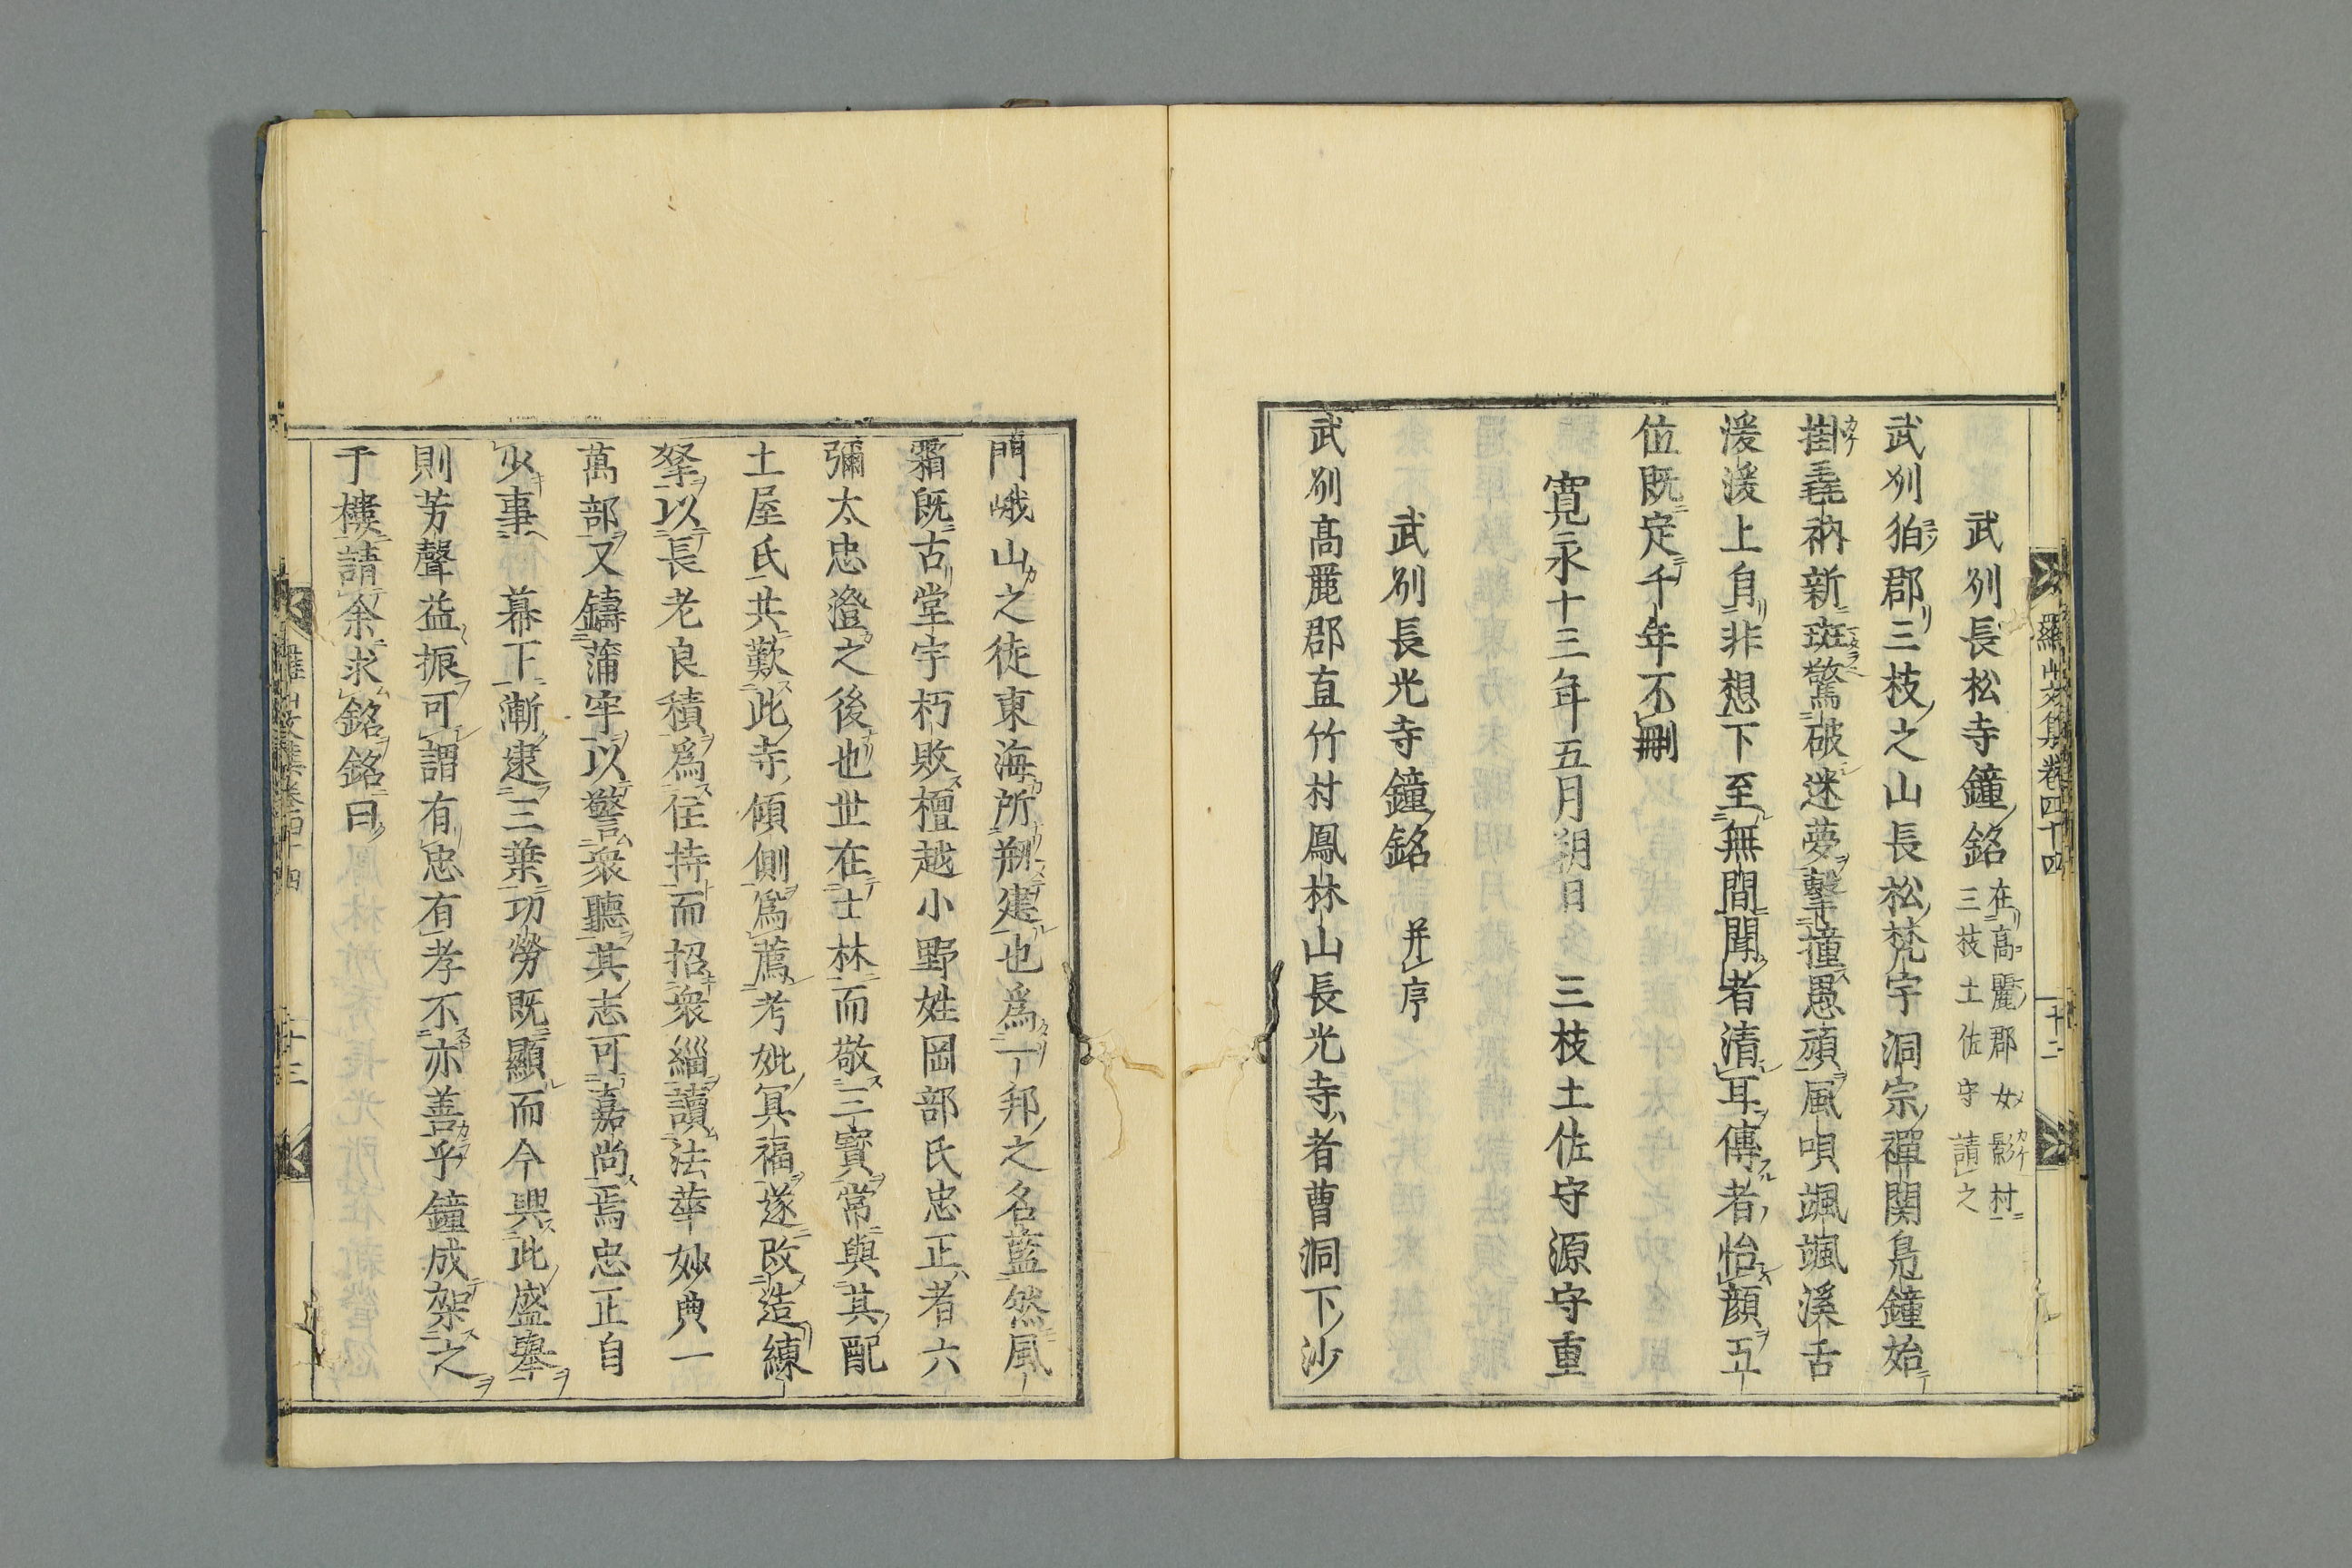 羅山文集卷四十四 十二
武刕長松寺鐘銘
在高麗郡女影村
三枝土佐守請之
武刕狛郡三枝之山長松梵宇洞宗禪関鳧鐘始
掛毳衲新斑驚破迷夢擊撞愚頑風唄颯颯溪舌
湲湲上自非想下至無間聞者清耳傳者怡顔五
位既定千年不刪
寛永十三年五月朔日 三枝土佐守源守重
武刕長光寺鐘銘 并序
武刕髙麗郡直竹村鳳林山長光寺者曹洞下沙
門峨山之徒東海所剏建也爲一邦之名藍然風
霜既古堂宇朽敗檀越小野姓岡部氏忠正者六
彌太忠澄之後也世在士林而敬三寳常與其配
土屋氏共歎此寺傾側爲薦考妣冥福遂改造練
若以長老良積爲住持而招衆緇讀法華妙典一
萬部又鑄蒲牢以警衆聽其志可嘉尚焉忠正自
少事 幕下漸逮三葉功勞既顯而今興此盛舉
則芳聲益振可謂有忠有孝不亦善乎鐘成架之
于樓請余求銘銘曰
羅山文集卷四十四 十三